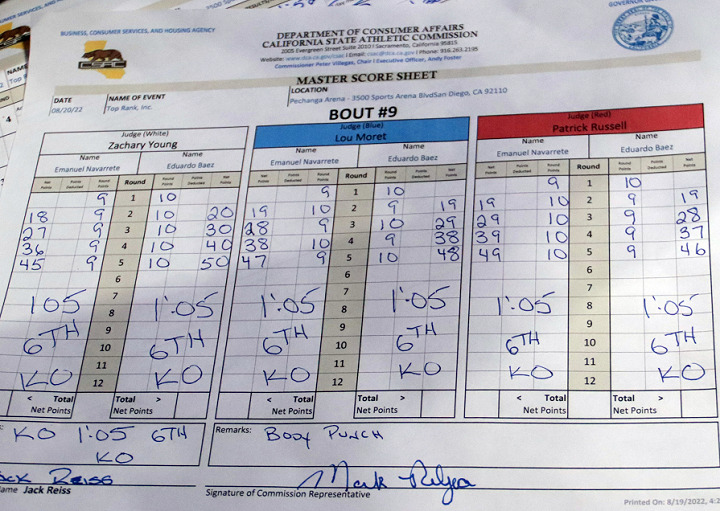 BUSINESS, CONSUMER SERVICES, AND HOUSING AGENCY
GOVERNOR
DEPARTMENT OF CONSUMER AFFAIRS
CALIFORNIA STATE ATHLETIC COMMISSION
2005 Evergreen Street Suite 2010 I Sacramento, California 95815
Website: www.dca.ca.gov/csac I Email: csac@dca.ca.gov I Phone: 916.263.2195
Commissioner Peter Villegas, Chair I Executive Officer, Andy Foster
CSAC
MASTER SCORE SHEET
DATE NAME OF EVENT LOCATION
08/20/22 Top Rank, Inc. Pechanga Arena - 3500 Sports Arena BlvdSan Diego, CA 92110
BOUT #9
Judge (White) Judge (Blue) Judge (Red)
Zachary Young Lou Moret Patrick Russell
Name Name Name Name Name Name
Emanuel Navarrete Eduardo Baez Emanuel Navarrete Eduardo Baez Emanuel Navarrete Eduardo Baez
Net Points Points Deducted Round Points Round Round Points Points Deducted Net Points Net Points Points Deducted Round Points Round Round Points Points Deducted Net Points Net Points Points Deducted Round Points Round Round Points Points Deducted Net Points
9 1 10 9 1 10 9 1 10
18 9 2 10 20 19 10 2 9 19 19 10 2 9 19
27 9 3 10 30 28 9 3 10 29 29 10 3 9 28
36 9 4 10 40 38 10 4 9 38 39 10 4 9 37
45 9 5 10 50 47 9 5 10 48 49 10 5 9 46
6 6 6
7 7 7
105 8 1:05 1:05 8 1:05 1:05 8 1:05
9 9 9
6TH 10 6TH 6TH 10 6TH 6TH 10 6TH
11 11 11
KO 12 KO KO 12 KO KO 12 KO
< Total Total > < Total Total > < Total Total >
Net Points Net Points Net Points Net Points Net Points Net Points
KO 1:05 6TH Remarks: BODY PUNCH
KO
REISS
Jack Reiss
Signature of Commission Representative
Printed On: 8/19/2022, 4:2